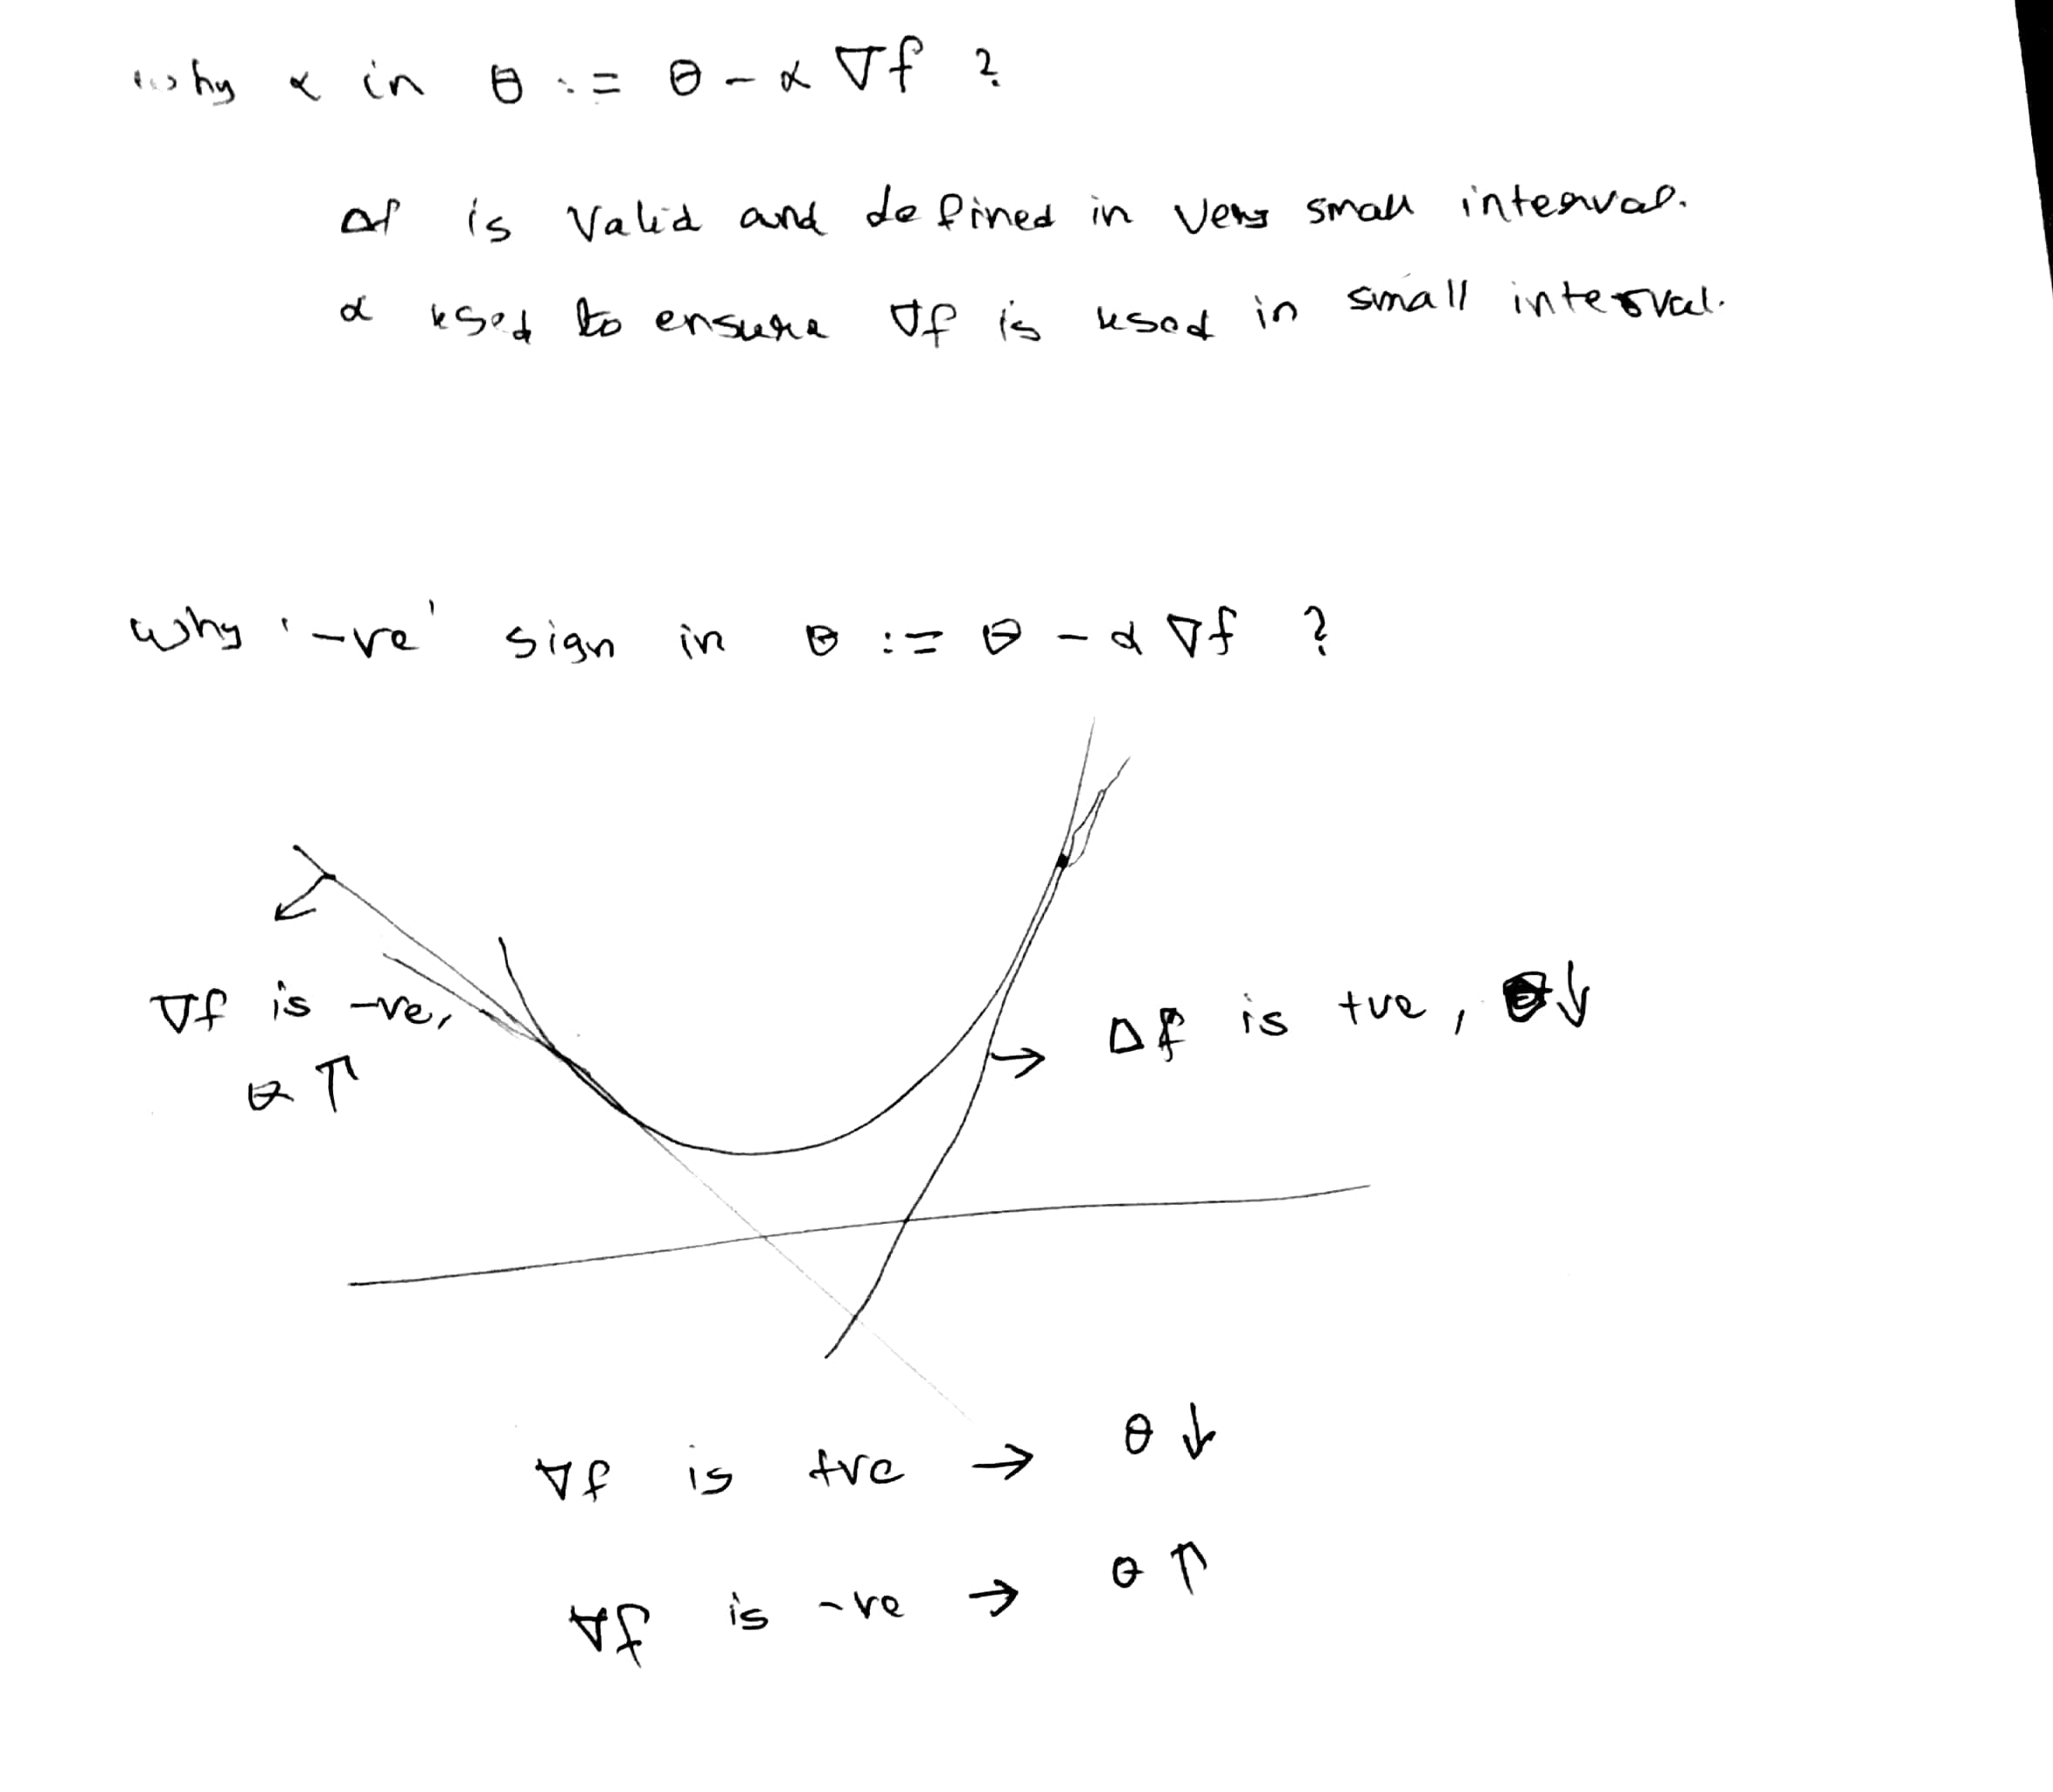 Why α in θ := θ - α ∇f ?
Δf is valid and defined in very small interval.
α used to ensure ∇f is used in small interval.
Why '-ve' sign in θ := θ - α ∇f ?
∇f is -ve,
θ ↑
→ Δf is +ve, θ↓
∇f is +ve → θ ↓
∇f is -ve → θ ↑